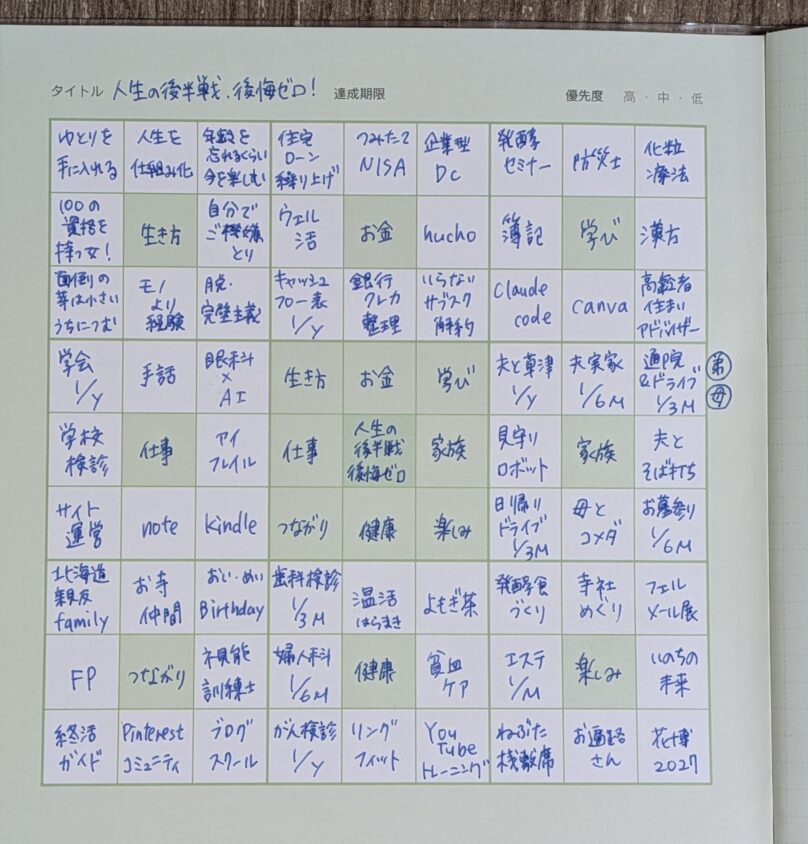 タイトル 人生の後半戦、後悔ゼロ! 達成期限 優先度 高・中・低
ゆとりを
手に入れる
人生を
仕組み化
年齢を
忘れるくらい
今を楽しむ
住宅
ローン
繰り上げ
つみたて
NISA
企業型
DC
発酵
セミナー
防災士
化粧
療法
100の
資格を
持つ女!
生き方
自分で
ご機嫌
とり
ウェル
活
お金
hucho
簿記
学び
漢方
面倒の
芽は小さい
うちにつむ
モノ
より
経験
脱・
完璧主義
キャッシュ
フロー表
1/Y
銀行
クレカ
整理
いらない
サブスク
解約
Claude
code
canva
高齢者
住まい
アドバイザー
学会
1/Y
手話
眼科
×
AI
生き方
お金
学び
夫と草津
1/Y
夫実家
1/6M
通院
&ドライブ
1/3M
弟
母
学校
検診
仕事
アイ
フレイル
仕事
人生の
後半戦
後悔ゼロ
家族
見守り
ロボット
家族
夫と
そば打ち
サイト
運営
note
kindle
つながり
健康
楽しみ
日帰り
ドライブ
1/3M
母と
コメダ
お墓参り
1/6M
北海道
親友
family
お寺
仲間
おい・めい
Birthday
歯科検診
1/3M
温活
はらまき
よもぎ茶
発酵食
づくり
寺社
めぐり
フェル
メール展
FP
つながり
視能
訓練士
婦人科
1/6M
健康
貧血
ケア
エステ
1/M
楽しみ
いのちの
未来
終活
ガイド
Pinterest
コミュニティ
ブログ
スクール
がん検診
1/Y
リング
フィット
You
Tube
トレーニング
ねぶた
桟敷席
お遍路
さん
花博
2027